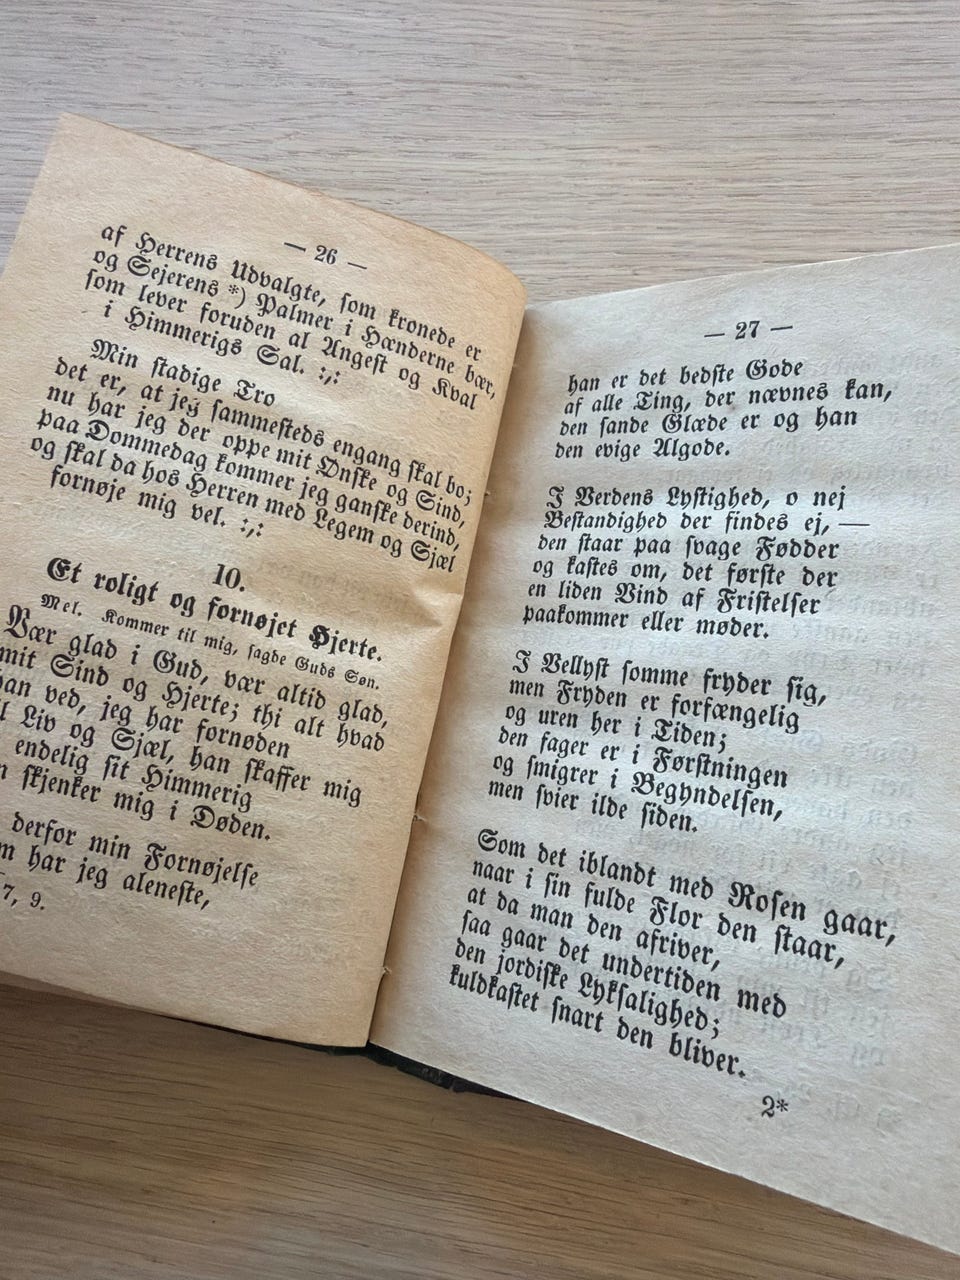 — 26 —
af Herrens Udvalgte, som kronede er
og Sejerens *) Palmer i Hænderne bær,
som lever foruden al Angest og Kval
i Himmerigs Sal. :,:
Min stadige Tro
det er, at jeg sammesteds engang skal bo;
nu har jeg der oppe mit Ønske og Sind,
paa Dommedag kommer jeg ganske derind,
og skal da hos Herren med Legem og Sjæl
fornøje mig vel. :,:
10.
Et roligt og fornøjet Hjerte.
Mel. Kommer til mig, sagde Guds Søn.
Vær glad i Gud, vær altid glad,
mit Sind og Hjerte; thi alt hvad
han ved, jeg har fornøden
Liv og Sjæl, han skaffer mig
endelig sit Himmerig
skjenker mig i Døden.
derfor min Fornøjelse
har jeg aleneste,
7, 9.
— 27 —
han er det bedste Gode
af alle Ting, der nævnes kan,
den sande Glæde er og han
den evige Algode.
I Verdens Lystighed, o nej
Bestandighed der findes ej, —
den staar paa svage Fødder
og kastes om, det første der
en liden Vind af Fristelser
paakommer eller møder.
I Vellyst somme fryder sig,
men Fryden er forfængelig
og uren her i Tiden;
den fager er i Førstningen
og smigrer i Begyndelsen,
men svier ilde siden.
Som det iblandt med Rosen gaar,
naar i sin fulde Flor den staar,
at da man den afriver,
saa gaar det undertiden med
den jordiske Lyksalighed;
kuldkastet snart den bliver.
2*